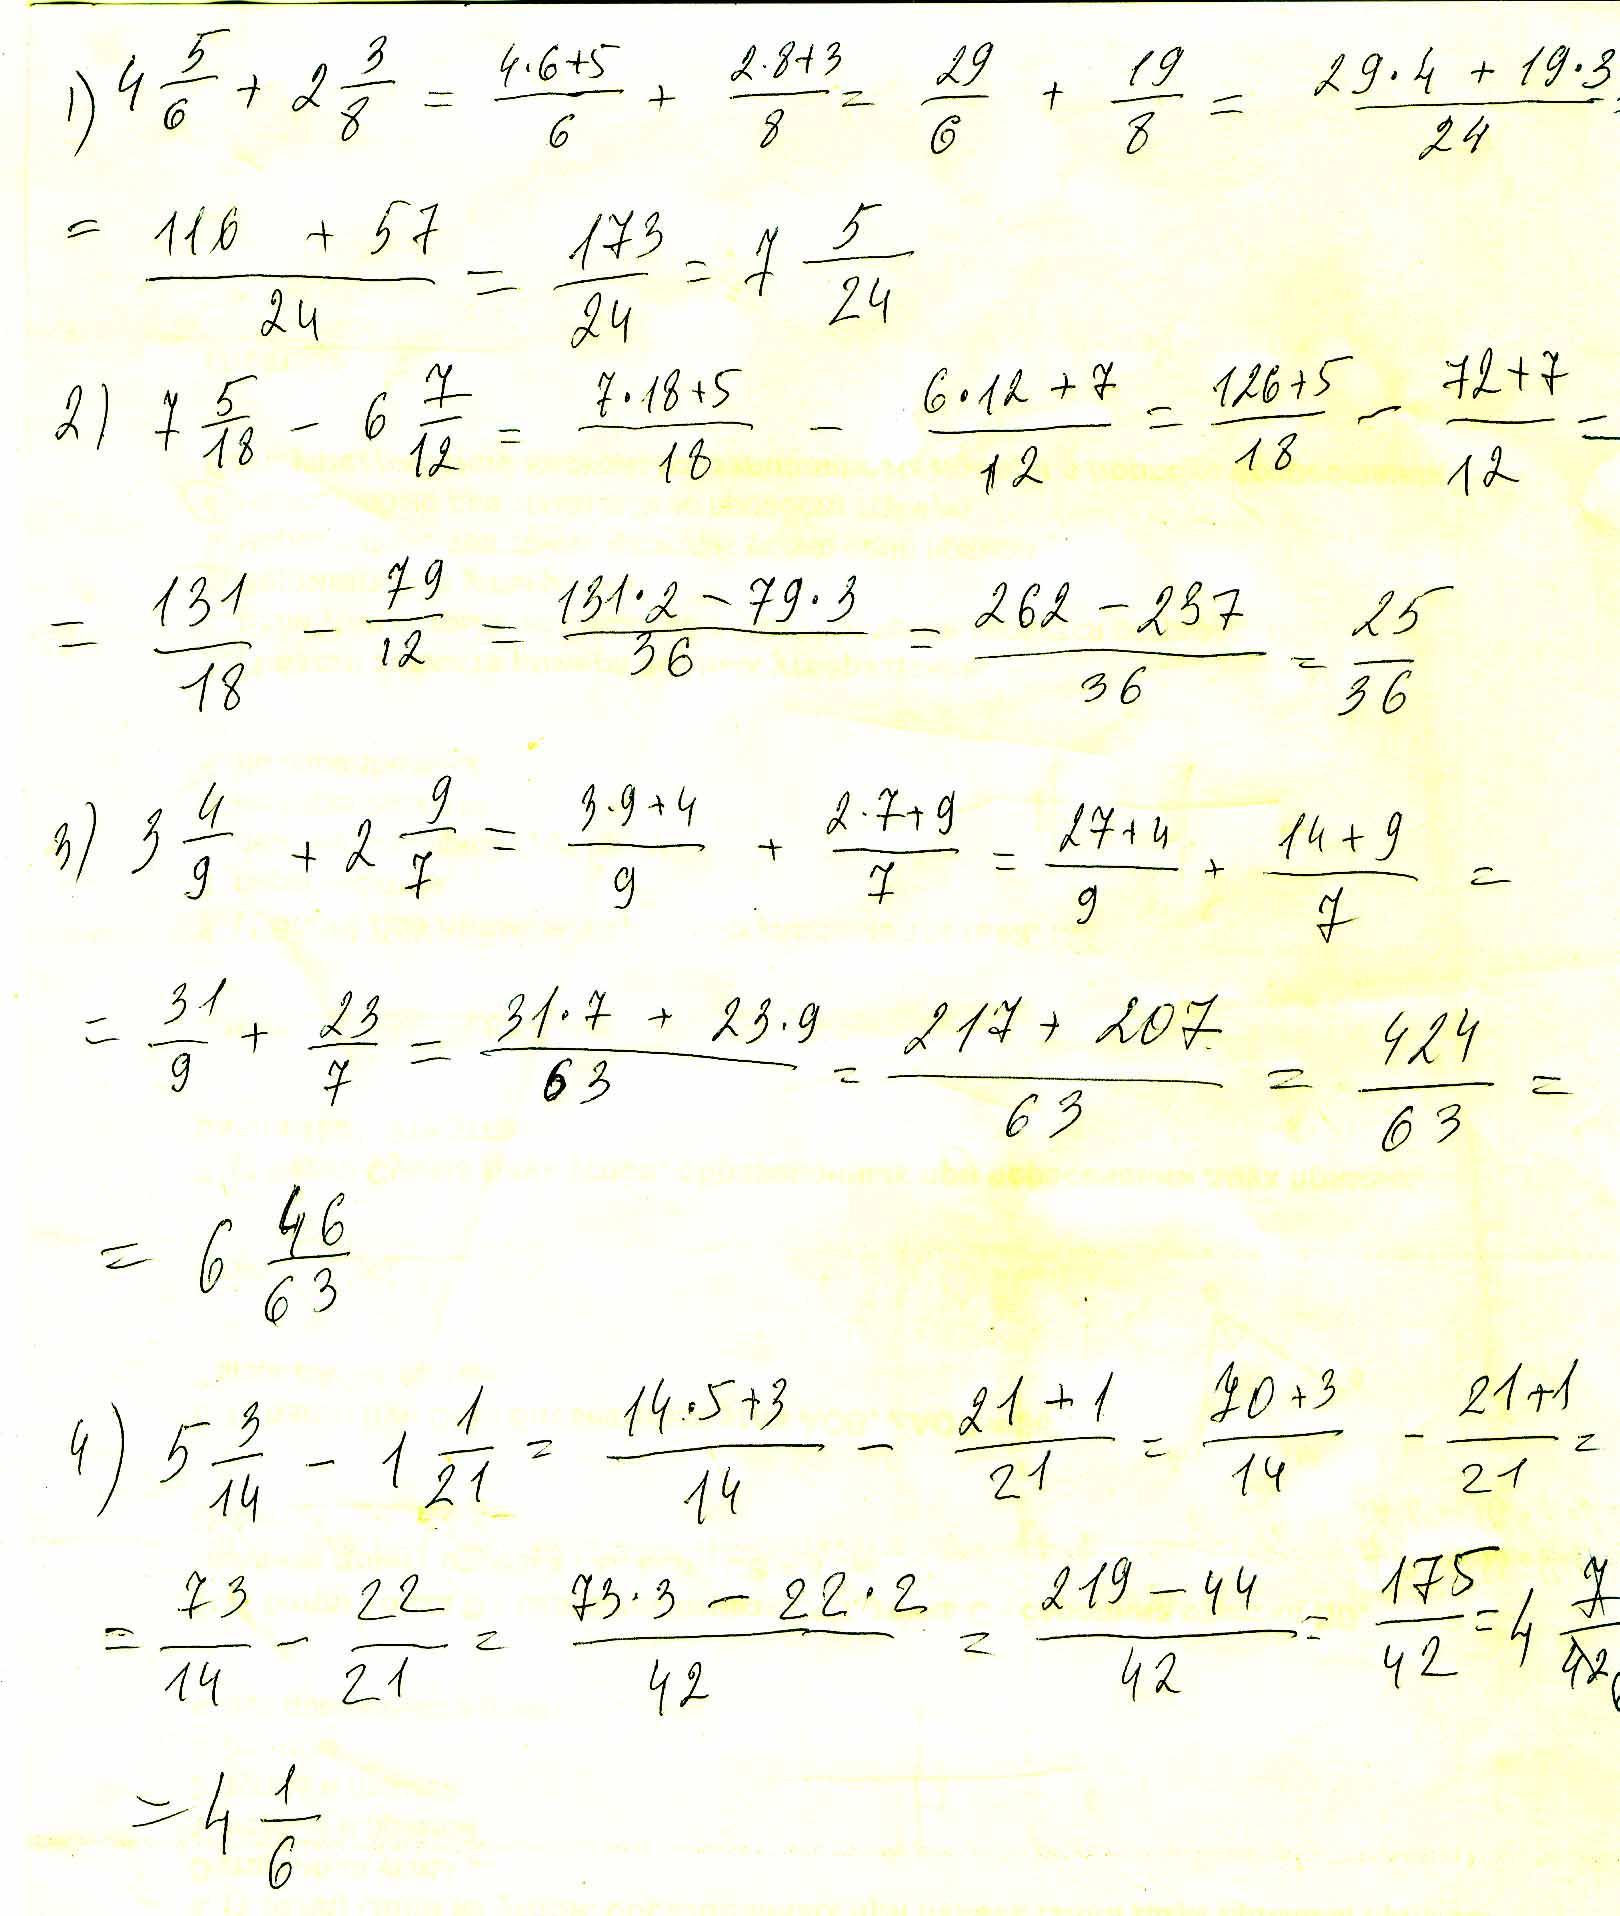 1) 4 5/6 + 2 3/8 = (4·6+5)/6 + (2·8+3)/8 = 29/6 + 19/8 = (29·4 + 19·3)/24 =
= (116 + 57)/24 = 173/24 = 7 5/24
2) 7 5/18 - 6 7/12 = (7·18+5)/18 - (6·12+7)/12 = (126+5)/18 - (72+7)/12 =
= 131/18 - 79/12 = (131·2 - 79·3)/36 = (262 - 237)/36 = 25/36
3) 3 4/9 + 2 9/7 = (3·9+4)/9 + (2·7+9)/7 = (27+4)/9 + (14+9)/7 =
= 31/9 + 23/7 = (31·7 + 23·9)/63 = (217 + 207)/63 = 424/63 =
= 6 46/63
4) 5 3/14 - 1 1/21 = (14·5+3)/14 - (21+1)/21 = (70+3)/14 - (21+1)/21 =
= 73/14 - 22/21 = (73·3 - 22·2)/42 = (219 - 44)/42 = 175/42 = 4 7/42
= 4 1/6